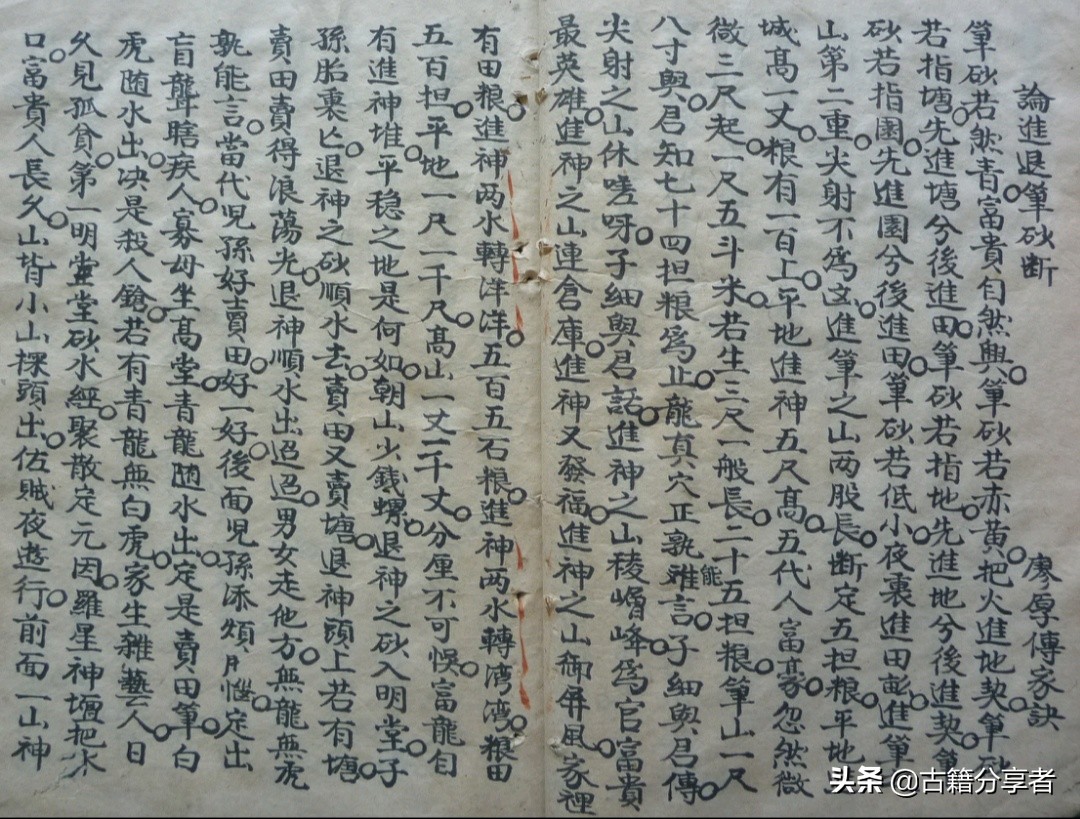 論進退筆砂断　廖厚傳家訣
筆砂若然青。富貴自然興。筆砂若赤黄。把火進地契。筆砂
若指塘。先進塘兮後進田。筆砂若指地。先進地兮後進契。筆
砂若指園。先進園兮後進田。筆砂若低小。夜裏進田彭。進筆
山第二重。尖射不爲凶。進筆之山两股長。断定五担粮。平地
城高一丈。粮有一百上。平地進神五尺高。五代人富豪。忽然微
微三尺起。一尺五斗米。若生三尺一般長。二十五担粮。筆山一尺
八寸興。君知七十四担粮爲止。龍真穴正孰能難言。子細與君傳。
尖射之山休嗟呀。子細與君話。進神之山稜嵋峰。爲官富貴
最英雄。進神之山連倉庫。進神又發福。進神之山御屏風。家裡
有田粮。進神两水轉洋洋。五百五石粮。進神两水轉湾湾。粮田
五百担。平地一尺一千尺。高山一丈一千丈。分厘不可悞。富龍自
有進神堆。平穏之地是何如。朝山少錢螺。退神之砂入明堂。子
孫胎裏亡。退神之砂順水去。賣田又賣塘。退神頭上若有塘。
賣田賣得浪蕩光。退神順水出迢迢。男女走他方。無龍無虎
孰能言。當代児孫好賣田。好一好。後面児孫添煩惱。定出
盲聾瞎疾人。寡母坐高堂。青龍随水出。定是賣田筆。白
虎随水出。决是殺人鎗。若有青龍無白虎。家生雜藝人。日
久見孤貧。第一明堂堂砂水經。聚散定元因。羅星神壇把水
口。富貴人長久。山背小山探頭出。佐賊夜遊行。前面一山神
头条 @古籍分享者